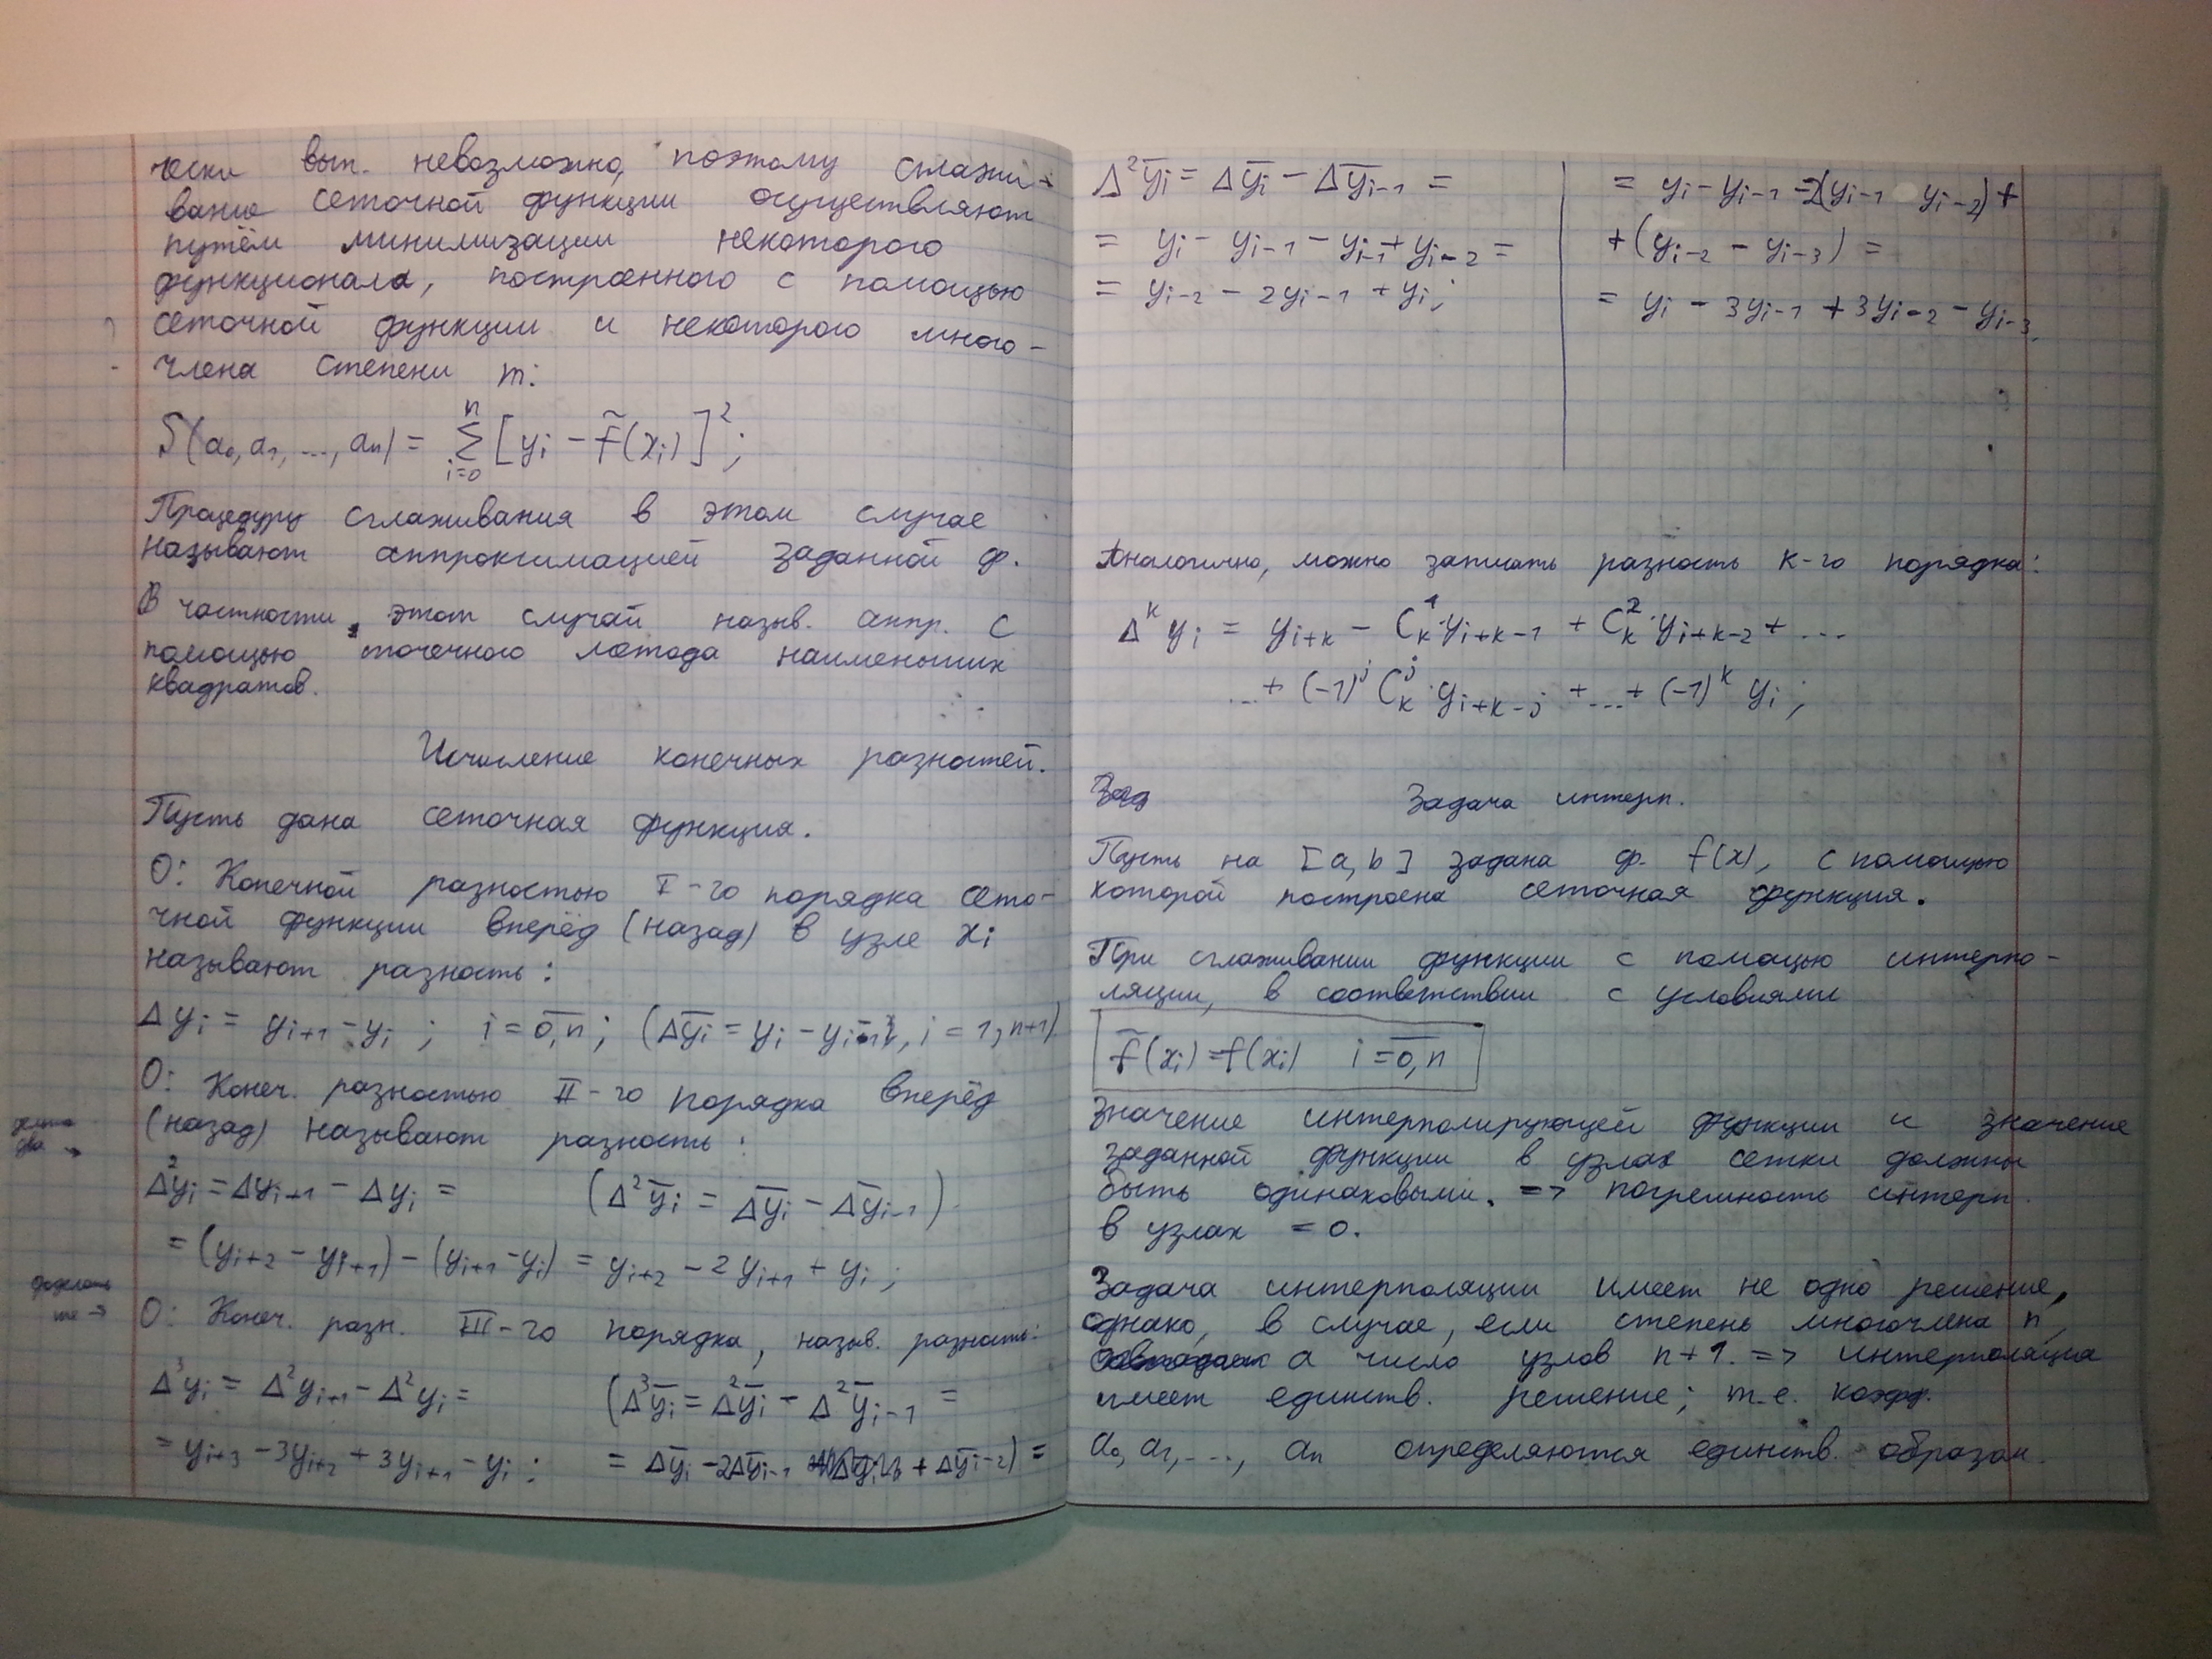 чески вып. невозможно, поэтому сглажи-
вание сеточной функции осуществляют
путём минимизации некоторого
функционала, построенного с помощью
сеточной функции и некоторого много-
члена степени m:
S(a₀, a₁, ..., aₙ) = Σ_{i=0}^{n} [yᵢ - f̃(xᵢ)]²;
Процедуру сглаживания в этом случае
называют аппроксимацией заданной ф.
В частности, этот случай назыв. аппр. с
помощью точечного метода наименьших
квадратов.
Исчисление конечных разностей.
Пусть дана сеточная функция.
О: Конечной разностью I-го порядка сето-
чной функции вперёд (назад) в узле xᵢ
называют разность:
Δyᵢ = y_{i+1} - yᵢ; i = \overline{0,n}; (Δȳᵢ = yᵢ - y_{i-1}, i = \overline{1,n+1})
О: Конеч. разностью II-го порядка вперёд
(назад) называют разность:
Δ²yᵢ = Δy_{i+1} - Δyᵢ = (Δ²ȳᵢ = Δȳᵢ - Δȳ_{i-1})
= (y_{i+2} - y_{i+1}) - (y_{i+1} - yᵢ) = y_{i+2} - 2y_{i+1} + yᵢ;
О: Конеч. разн. III-го порядка, назыв. разность:
Δ³yᵢ = Δ²y_{i+1} - Δ²yᵢ = (Δ³ȳᵢ = Δ²ȳᵢ - Δ²ȳ_{i-1} =
= y_{i+3} - 3y_{i+2} + 3y_{i+1} - yᵢ; = Δȳᵢ - 2Δȳ_{i-1} + Δȳ_{i-2}) =
Δ²ȳᵢ = Δȳᵢ - Δȳ_{i-1} =
= yᵢ - y_{i-1} - y_{i-1} + y_{i-2} =
= y_{i-2} - 2y_{i-1} + yᵢ;
= yᵢ - y_{i-1} - 2(y_{i-1} y_{i-2}) +
+ (y_{i-2} - y_{i-3}) =
= yᵢ - 3y_{i-1} + 3y_{i-2} - y_{i-3}.
Аналогично, можно записать разность k-го порядка:
Δᵏyᵢ = y_{i+k} - C_k^1·y_{i+k-1} + C_k^2·y_{i+k-2} + ...
... + (-1)^j C_k^j·y_{i+k-j} + ... + (-1)^k yᵢ;
Зад Задача интерп.
Пусть на [a, b] задана ф. f(x), с помощью
которой построена сеточная функция.
При сглаживании функции с помощью интерпо-
ляции, в соответствии с условиями
f̃(xᵢ) = f(xᵢ) i = \overline{0,n}
значение интерполирующей функции и значение
заданной функции в узлах сетки должны
быть одинаковыми. => погрешность интерп.
в узлах = 0.
Задача интерполяции имеет не одно решение,
однако, в случае, если степень многочлена n,
а число узлов n+1. => интерполяция
имеет единств. решение; т.е. коэфф.
a₀, a₁, ..., aₙ определяются единств. образом.